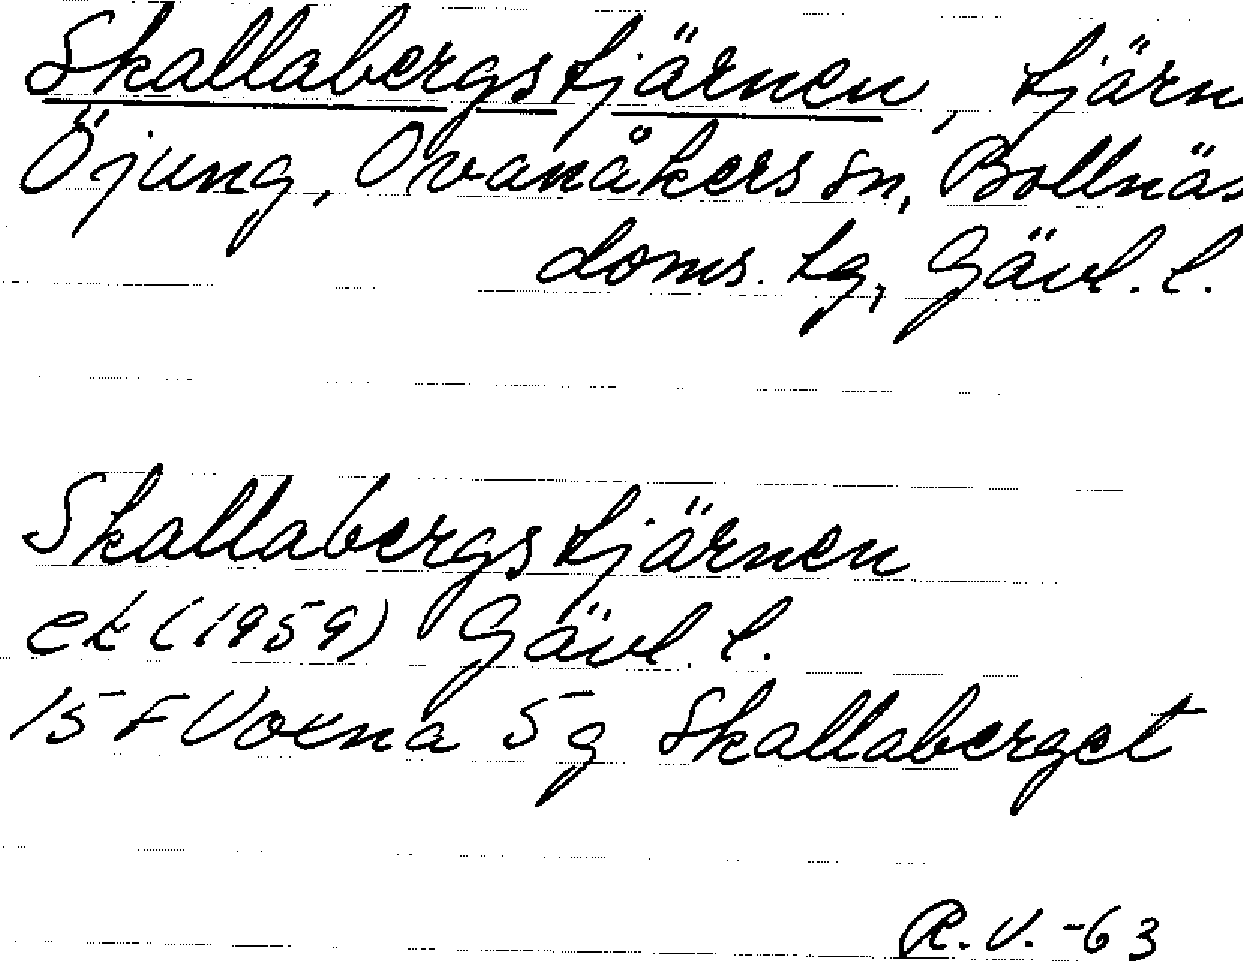 Skallabergstjärnen, tjärn
Öjung, Ovanåkers sn, Bollnäs
doms. tg, Gävl. l.
Skallabergstjärnen
ek (1959) Gävl. l.
15 F Voxna 5 g Skallaberget
R.V. -63